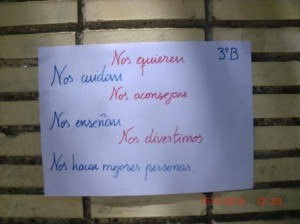 Nos quieren 3ºB
Nos cuidan
Nos aconsejan
Nos enseñan
Nos divertimos
Nos hacen mejores personas.